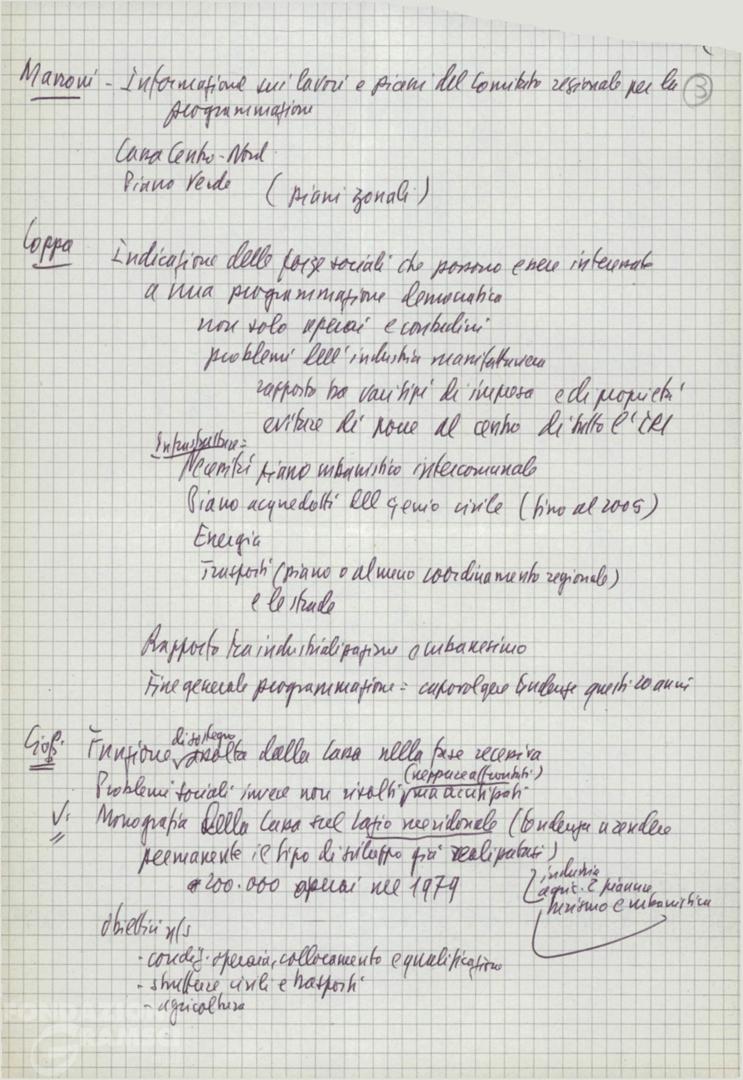 Marroni - Informazione sui lavori e piani del Comitato regionale per la
programmazione
3
Cassa Centro-Nord
Piano Verde (piani zonali)
Coppa Indicazione delle forze sociali che possono essere interessate
a una programmazione democratica
non solo operai e contadini
problemi dell'industria manifatturiera
rapporto tra vari tipi di impresa e di proprietà
evitare di porre al centro di tutto l'IRI
Infrastrutture =
Necessità piano urbanistico intercomunale
Piano acquedotti del Genio civile (fino al 2005)
Energia
Trasporti (piano o almeno coordinamento regionale)
e le strade
Rapporto tra industrializzazione e urbanesimo
Fine generale programmazione = capovolgere tendenze questi 20 anni
di sostegno
Funzione svolta dalla Cassa nella fase recessiva
(neppure affrontati)
Problemi sociali invece non risolti ma acutizzati
V. Monografia della Cassa sul Lazio meridionale (tendenza a rendere
permanente il tipo di sviluppo già realizzatosi)
200.000 operai nel 1979
industria
agric. e pianure
turismo e urbanistica
obiettivi ns
- condiz. operaia, collocamento e qualificazione
- strutture civili e trasporti
- agricoltura
FONDAZIONE
GRAMSCI